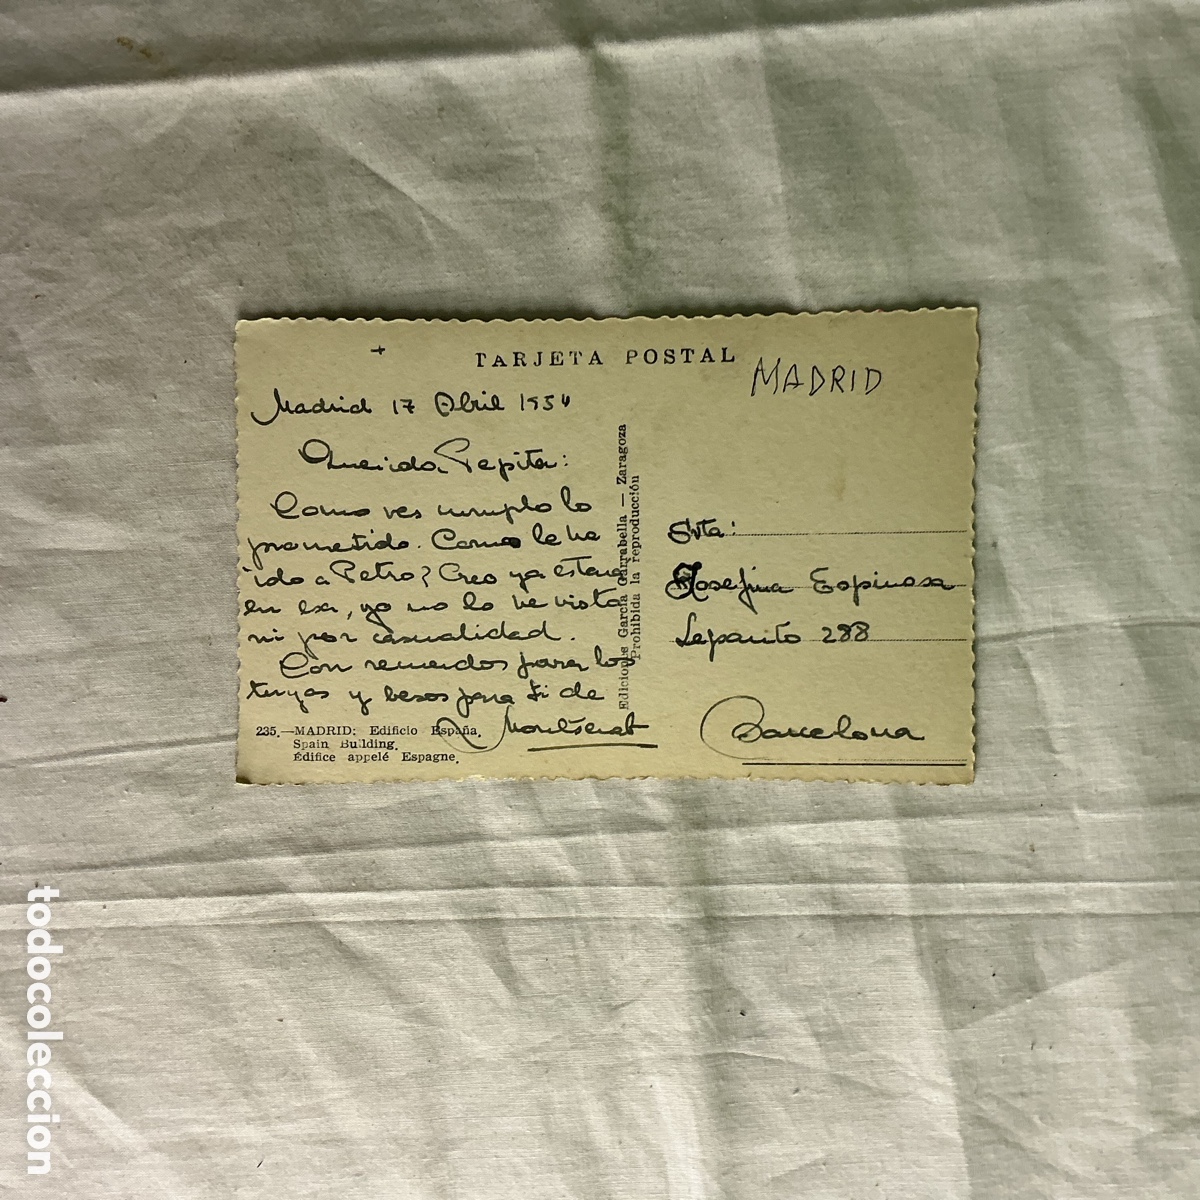 +
TARJETA POSTAL
MADRID
Madrid 17 Abril 1954
Querida Pepita:
Como ves cumplo lo
prometido. Como le ha
ido a Petro? Creo ya estara
en esa, yo no lo he visto
ni por casualidad.
Con recuerdos para los
tuyos y besos para ti de
Montserrat
235.—MADRID: Edificio España.
Spain Building.
Édifice appelé Espagne.
Ediciones García Garrabella — Zaragoza
Prohibida la reproducción
Srta:
Josefina Espinosa
Lepanto 288
Barcelona
todocoleccion